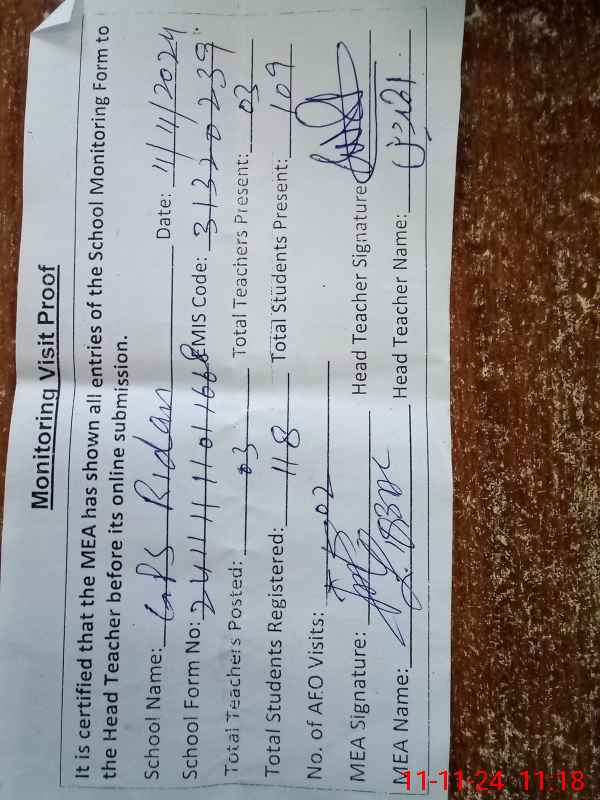 Monitoring Visit Proof
It is certified that the MEA has shown all entries of the School Monitoring Form to
the Head Teacher before its online submission.
School Name: GPS Ridan Date: 11/11/2024
School Form No: 24111111011668 EMIS Code: 31320239
Total Teachers Posted: 03 Total Teachers Present: 03
Total Students Registered: 118 Total Students Present: 109
No. of AEO Visits: 02
MEA Signature: Head Teacher Signature
MEA Name: Head Teacher Name:
11-11-24 11:18